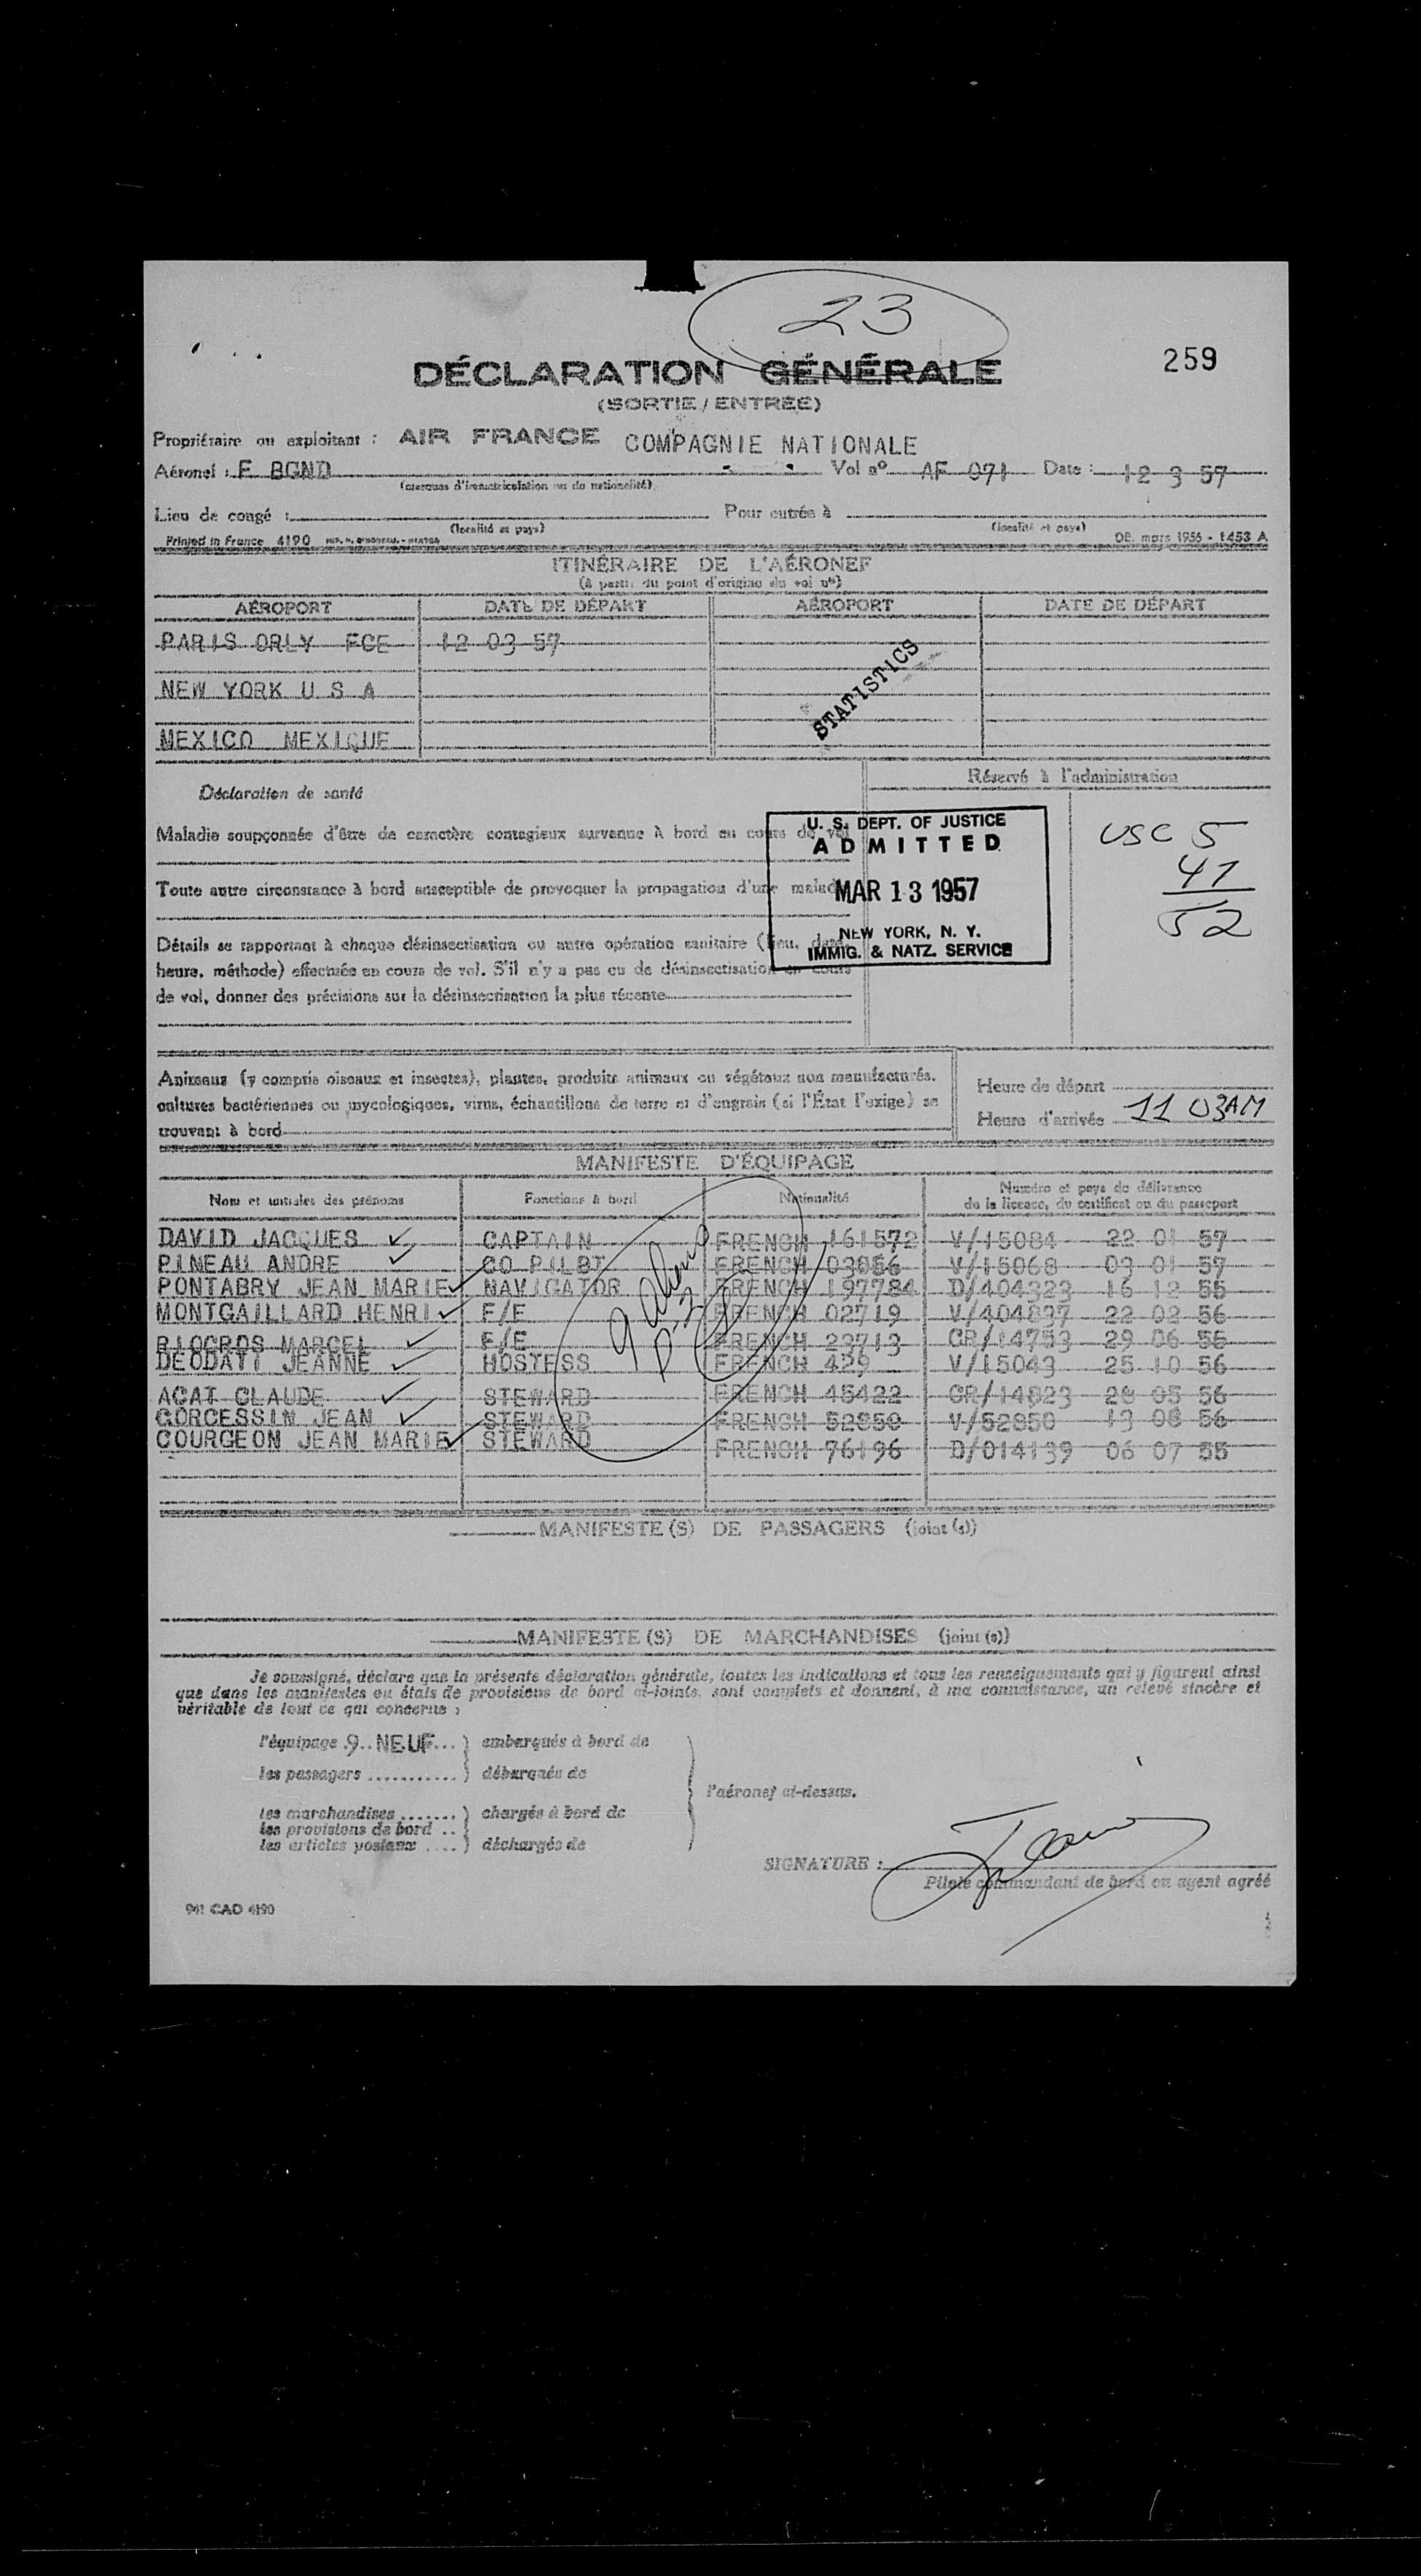 23
259
DÉCLARATION GÉNÉRALE
(SORTIE / ENTRÉE)
Propriétaire ou exploitant : AIR FRANCE COMPAGNIE NATIONALE
Aéronef : F BGND Vol nº AF 071 Date : 12 3 57
(marques d'immatriculation ou de nationalité)
Lieu de congé : Pour entrée à
(localité et pays) (localité et pays)
Printed in France 4190 DE. mars 1956 - 1453 A
ITINÉRAIRE DE L'AÉRONEF
(à partir du point d'origine du vol nº)
AÉROPORT DATE DE DÉPART AÉROPORT DATE DE DÉPART
PARIS ORLY FCE 12 03 57
NEW YORK U S A
MEXICO MEXIQUE
STATISTICS
Déclaration de santé
Réservé à l'administration
Maladie soupçonnée d'être de caractère contagieux survenue à bord en cours de vol
Toute autre circonstance à bord susceptible de provoquer la propagation d'une maladie
Détails se rapportant à chaque désinsectisation ou autre opération sanitaire (lieu, date,
heure, méthode) effectuée en cours de vol. S'il n'y a pas eu de désinsectisation en cours
de vol, donner des précisions sur la désinsectisation la plus récente
U. S. DEPT. OF JUSTICE
ADMITTED
MAR 13 1957
NEW YORK, N. Y.
IMMIG. & NATZ. SERVICE
USC 5
47
52
Animaux (y compris oiseaux et insectes), plantes, produits animaux ou végétaux non manufacturés,
cultures bactériennes ou mycologiques, virus, échantillons de terre et d'engrais (si l'État l'exige) se
trouvant à bord
Heure de départ
Heure d'arrivée 11 03AM
MANIFESTE D'ÉQUIPAGE
Nom et initiales des prénoms Fonctions à bord Nationalité Numéro et pays de délivrance
de la licence, du certificat ou du passeport
DAVID JACQUES CAPTAIN FRENCH 161572 V/15084 22 01 57
PINEAU ANDRE CO PILOT FRENCH 03056 V/15068 03 01 57
PONTABRY JEAN MARIE NAVIGATOR FRENCH 197784 D/404323 16 12 55
MONTGAILLARD HENRI F/E FRENCH 02719 V/404897 22 02 56
RIOCROS MARCEL F/E FRENCH 23713 GR/14753 29 06 56
DEODATI JEANNE HOSTESS FRENCH 429 V/15043 25 10 56
AGAT CLAUDE STEWARD FRENCH 45422 GR/14823 28 05 56
GORCESSIN JEAN STEWARD FRENCH 52850 V/52850 13 08 56
COURGEON JEAN MARIE STEWARD FRENCH 76196 D/014139 06 07 55
9 Aliens
D-3
MANIFESTE (S) DE PASSAGERS (joint (s))
MANIFESTE (S) DE MARCHANDISES (joint (s))
Je soussigné, déclare que la présente déclaration générale, toutes les indications et tous les renseignements qui y figurent ainsi
que dans les manifestes ou états de provisions de bord ci-joints, sont complets et donnent, à ma connaissance, un relevé sincère et
véritable de tout ce qui concerne :
l'équipage 9 NEUF ) embarqués à bord de
les passagers ........... ) débarqués de
l'aéronef ci-dessus.
les marchandises ....... ) chargés à bord de
les provisions de bord ..
les articles postaux .... ) déchargés de
SIGNATURE :
Pilote commandant de bord ou agent agréé
941 CAD 4190